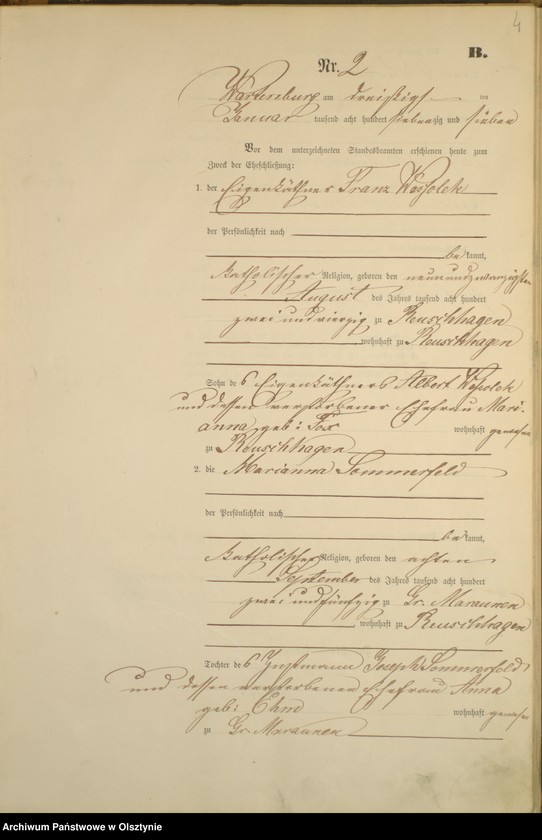 4
B.
Nr. 2
Wartenburg am dreißigsten
Januar tausend acht hundert siebenzig und sieben
Vor dem unterzeichneten Standesbeamten erschienen heute zum
Zweck der Eheschließung:
1. der Eigenkäthner Franz
der Persönlichkeit nach
bekannt,
katholischer Religion, geboren den neunundzwanzigsten
August des Jahres tausend acht hundert
zwei und vierzig zu Reuschhagen
wohnhaft zu Reuschhagen
Sohn des Eigenkäthners Albert
und dessen verstorbener Ehefrau Mari-
anna geb: wohnhaft gewesen
zu Reuschhagen
2. die Marianna Sommerfeld
der Persönlichkeit nach
bekannt,
katholischer Religion, geboren den achten
September des Jahres tausend acht hundert
zwei und fünfzig zu Gr. Maraunen
wohnhaft zu Reuschhagen
Tochter des Instmann Joseph Sommerfeld
und dessen verstorbenen Ehefrau Anna
geb: wohnhaft gewesen
zu Gr. Maraunen
Archiwum Państwowe w Olsztynie